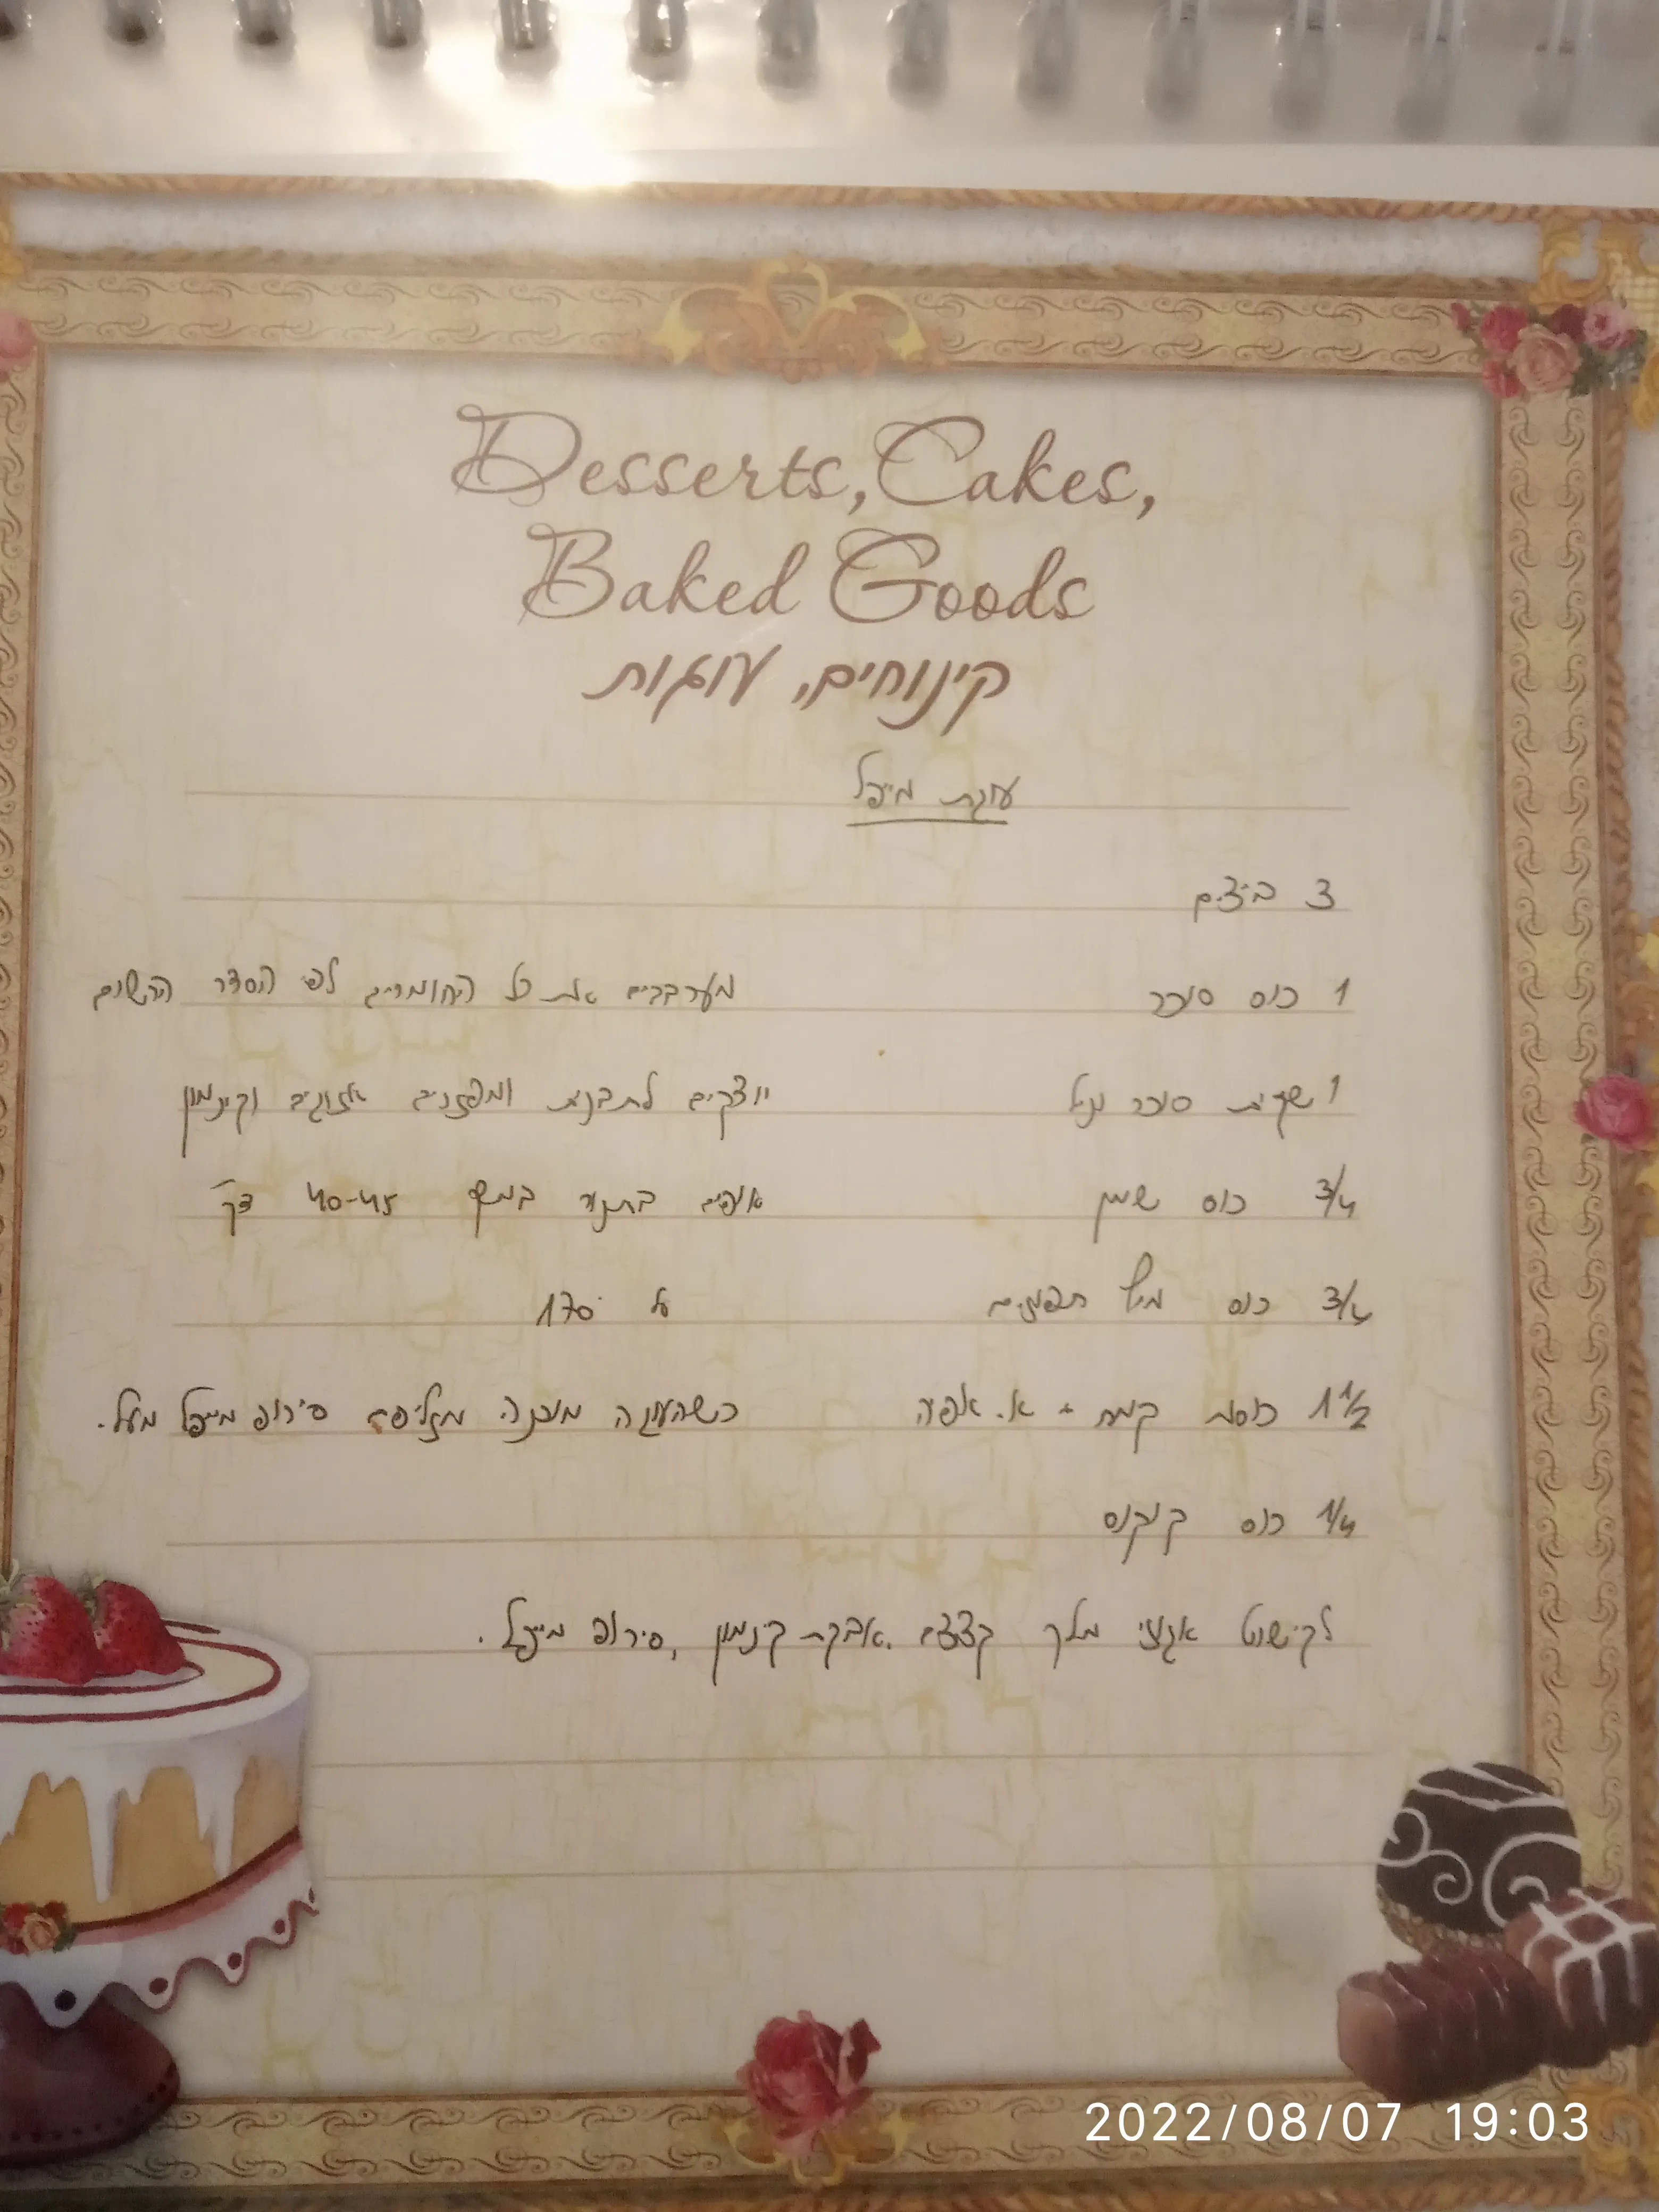 Desserts, Cakes,
Baked Goods
קינוחים, עוגות
עוגת מייפל
3 ביצים
1 כוס סוכר
מערבבים את כל החומרים לפי הסדר הרשום
1 שקית סוכר וניל
יוצקים לתבנית ומפזרים אגוזים וקינמון
3/4 כוס שמן
אופים בתנור במשך 40-45 דק'
3/4 כוס מיץ תפוזים
על 170°
1 1/2 כוסות קמח + א. אפיה
כשהעוגה מוכנה מזליפים סירופ מייפל מעל.
1/4 כוס קוקוס
לקישוט אגוזי מלך קצוצים, אבקת קינמון, סירופ מייפל.
2022/08/07 19:03